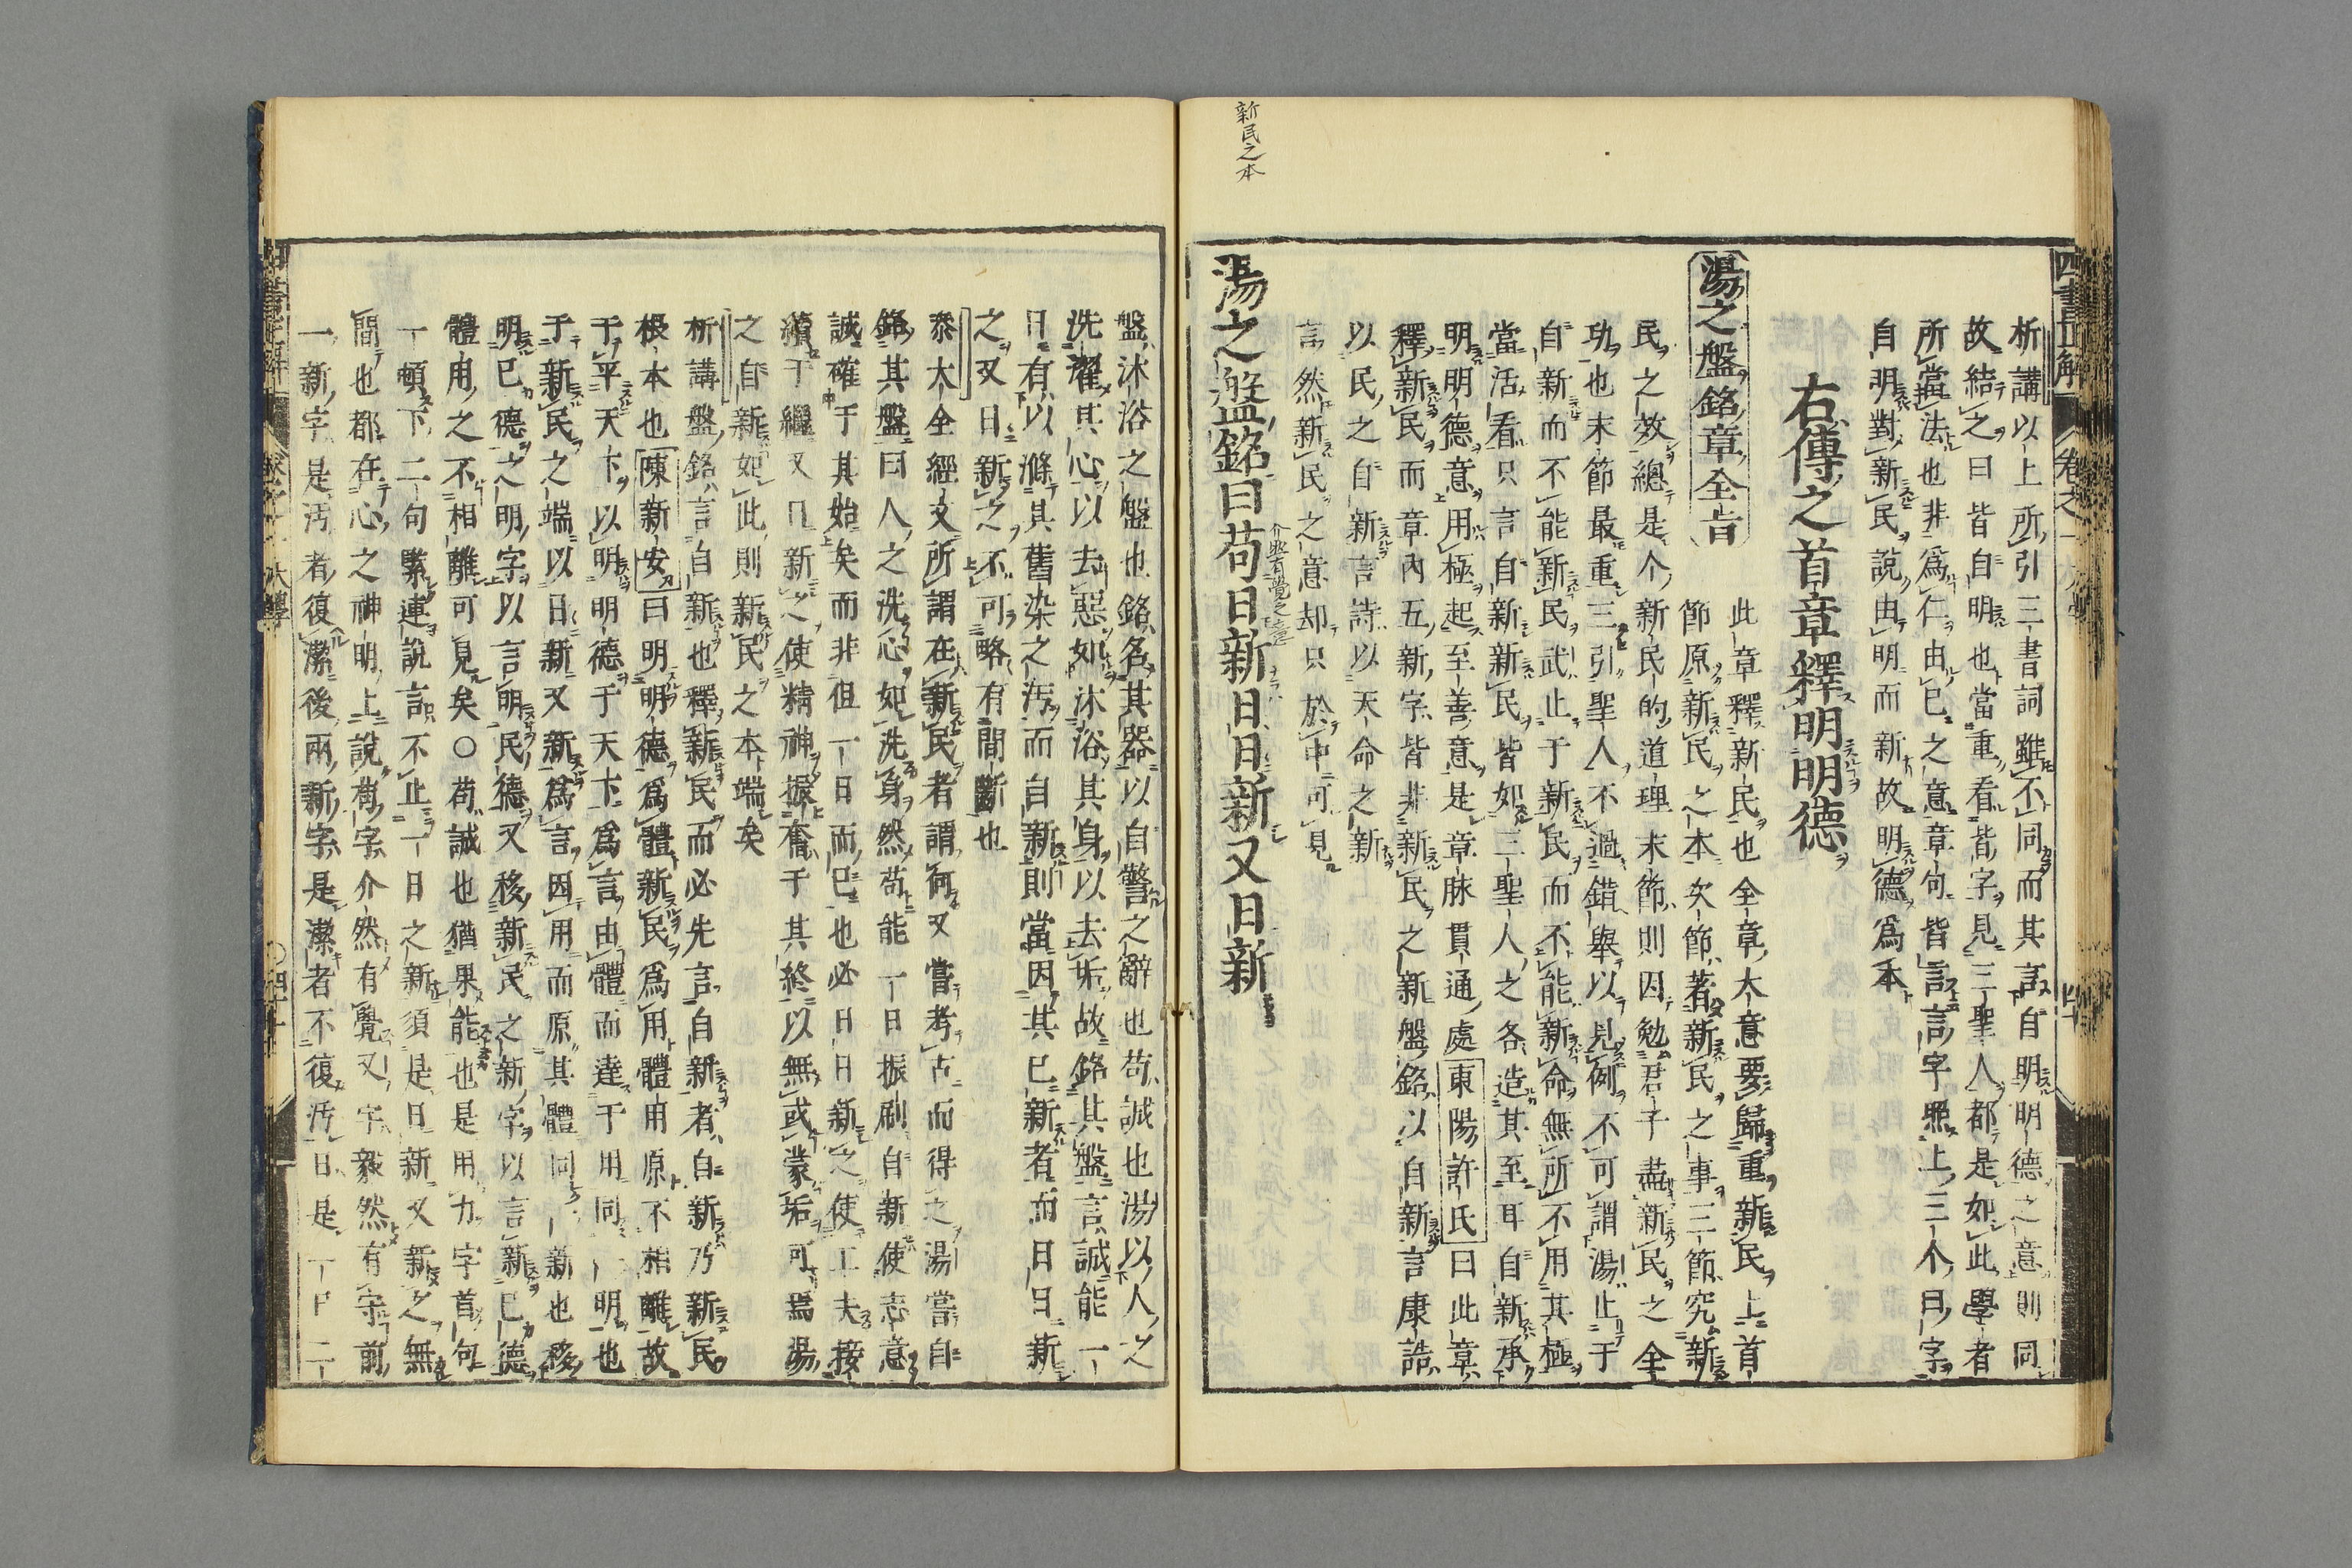 新民之本
四書正解
卷之一
析講以上所引三書詞雖不同而其言自明明德之意則同
故結之曰皆自明也當重看皆字見三聖人都是如此學者
所當法也非為仁由己之意章句皆言言字照上三个曰字
自明對新民說由明而新故明德為本
右傳之首章釋明明德
湯之盤銘章全旨
此章釋新民也全章大意要歸重新民上首
節原新民之本次節著新民之事三節究新
民之效總是个新民的道理末節則因勉君子盡新民之全
功也末節最重三引聖人不過錯舉以見例不可謂湯止于
自新而不能新民武止于新民而不能新命無所不用其極
當活看只言自新新民皆如三聖人之各造其至耳自新承
明明德意用極起至善意是章脉貫通處東陽許氏曰此章
釋新民而章內五新字皆非新民之新盤銘以自新言康誥
以民之自新言詩以天命之新
言然新民之意却只於中可見
湯之盤銘曰苟日新日日新又日新
盤沐浴之盤也銘名其器以自警之辭也苟誠也湯以人之
洗濯其心以去惡如沐浴其身以去垢故銘其盤言誠能一
日有以滌其舊染之汚而自新則當因其已新者而日日新
之又日新之不可略有間斷也
叅大全經文所謂在新民者謂何又嘗考古而得之湯嘗自
銘其盤曰人之洗心如洗身然苟能一日振刷自新使志意
誠確于其始矣而非但一日而已也必日日新之使工夫接
續于繼又日新之使精神振奮于其終以無或蒙垢可焉湯
之自新如此則新民之本端矣
析講盤銘言自新也釋新民而必先言自新者自新乃新民
根本也陳新安曰明明德為體新民為用體用原不相離故
于平天下以明明德于天下為言由體而達于用同一明也
于新民之端以日新又新為言因用而原其體同一新也移
明己德之明字以言明民德又移新民之新字以言新己德
體用之不相離可見矣○苟誠也猶果能也是用力字首句
一頓下二句緊連說言不止一日之新須是日新又新之無
間也都在心之神明上說苟字介然有覺又字毅然有守前
一新字是汚者復潔後兩新字是潔者不復汚日是